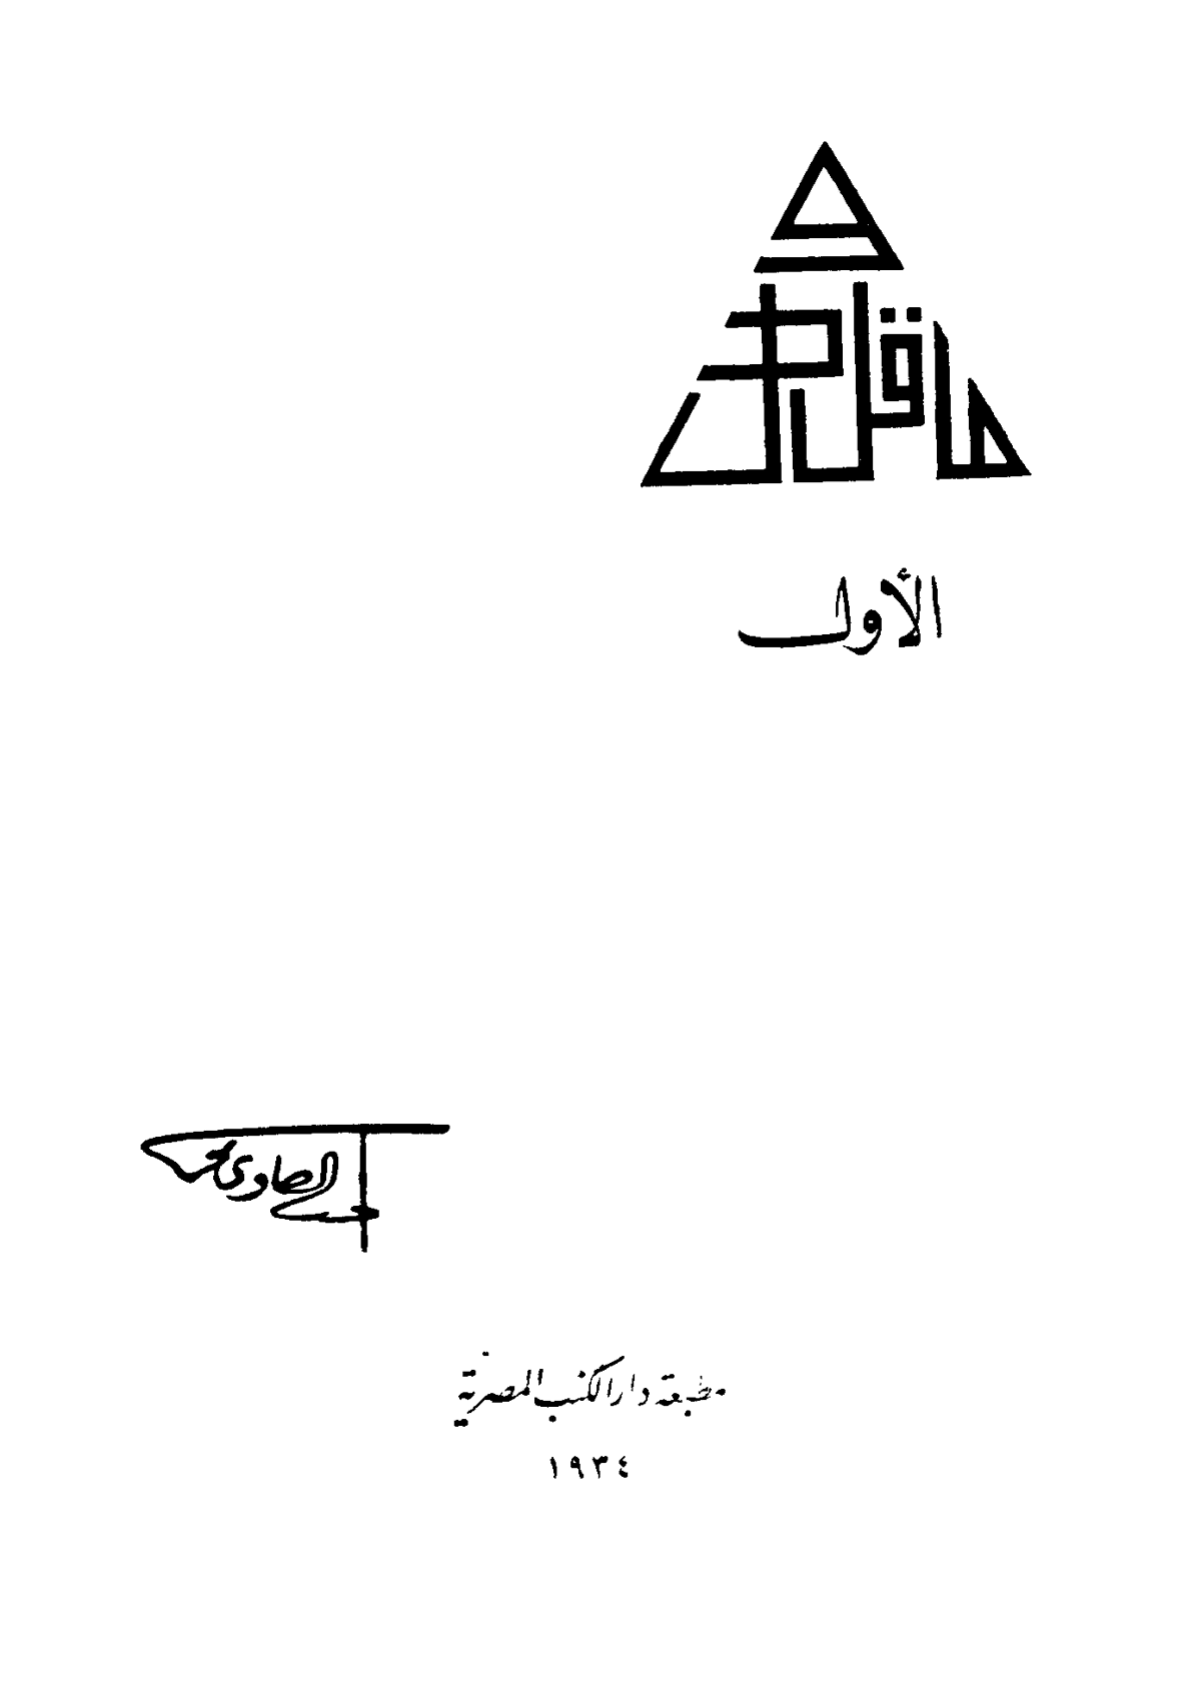 ما قل ودل
الأول
احمد الصاوى محمد
مطبعة دار الكتب المصرية
١٩٣٤